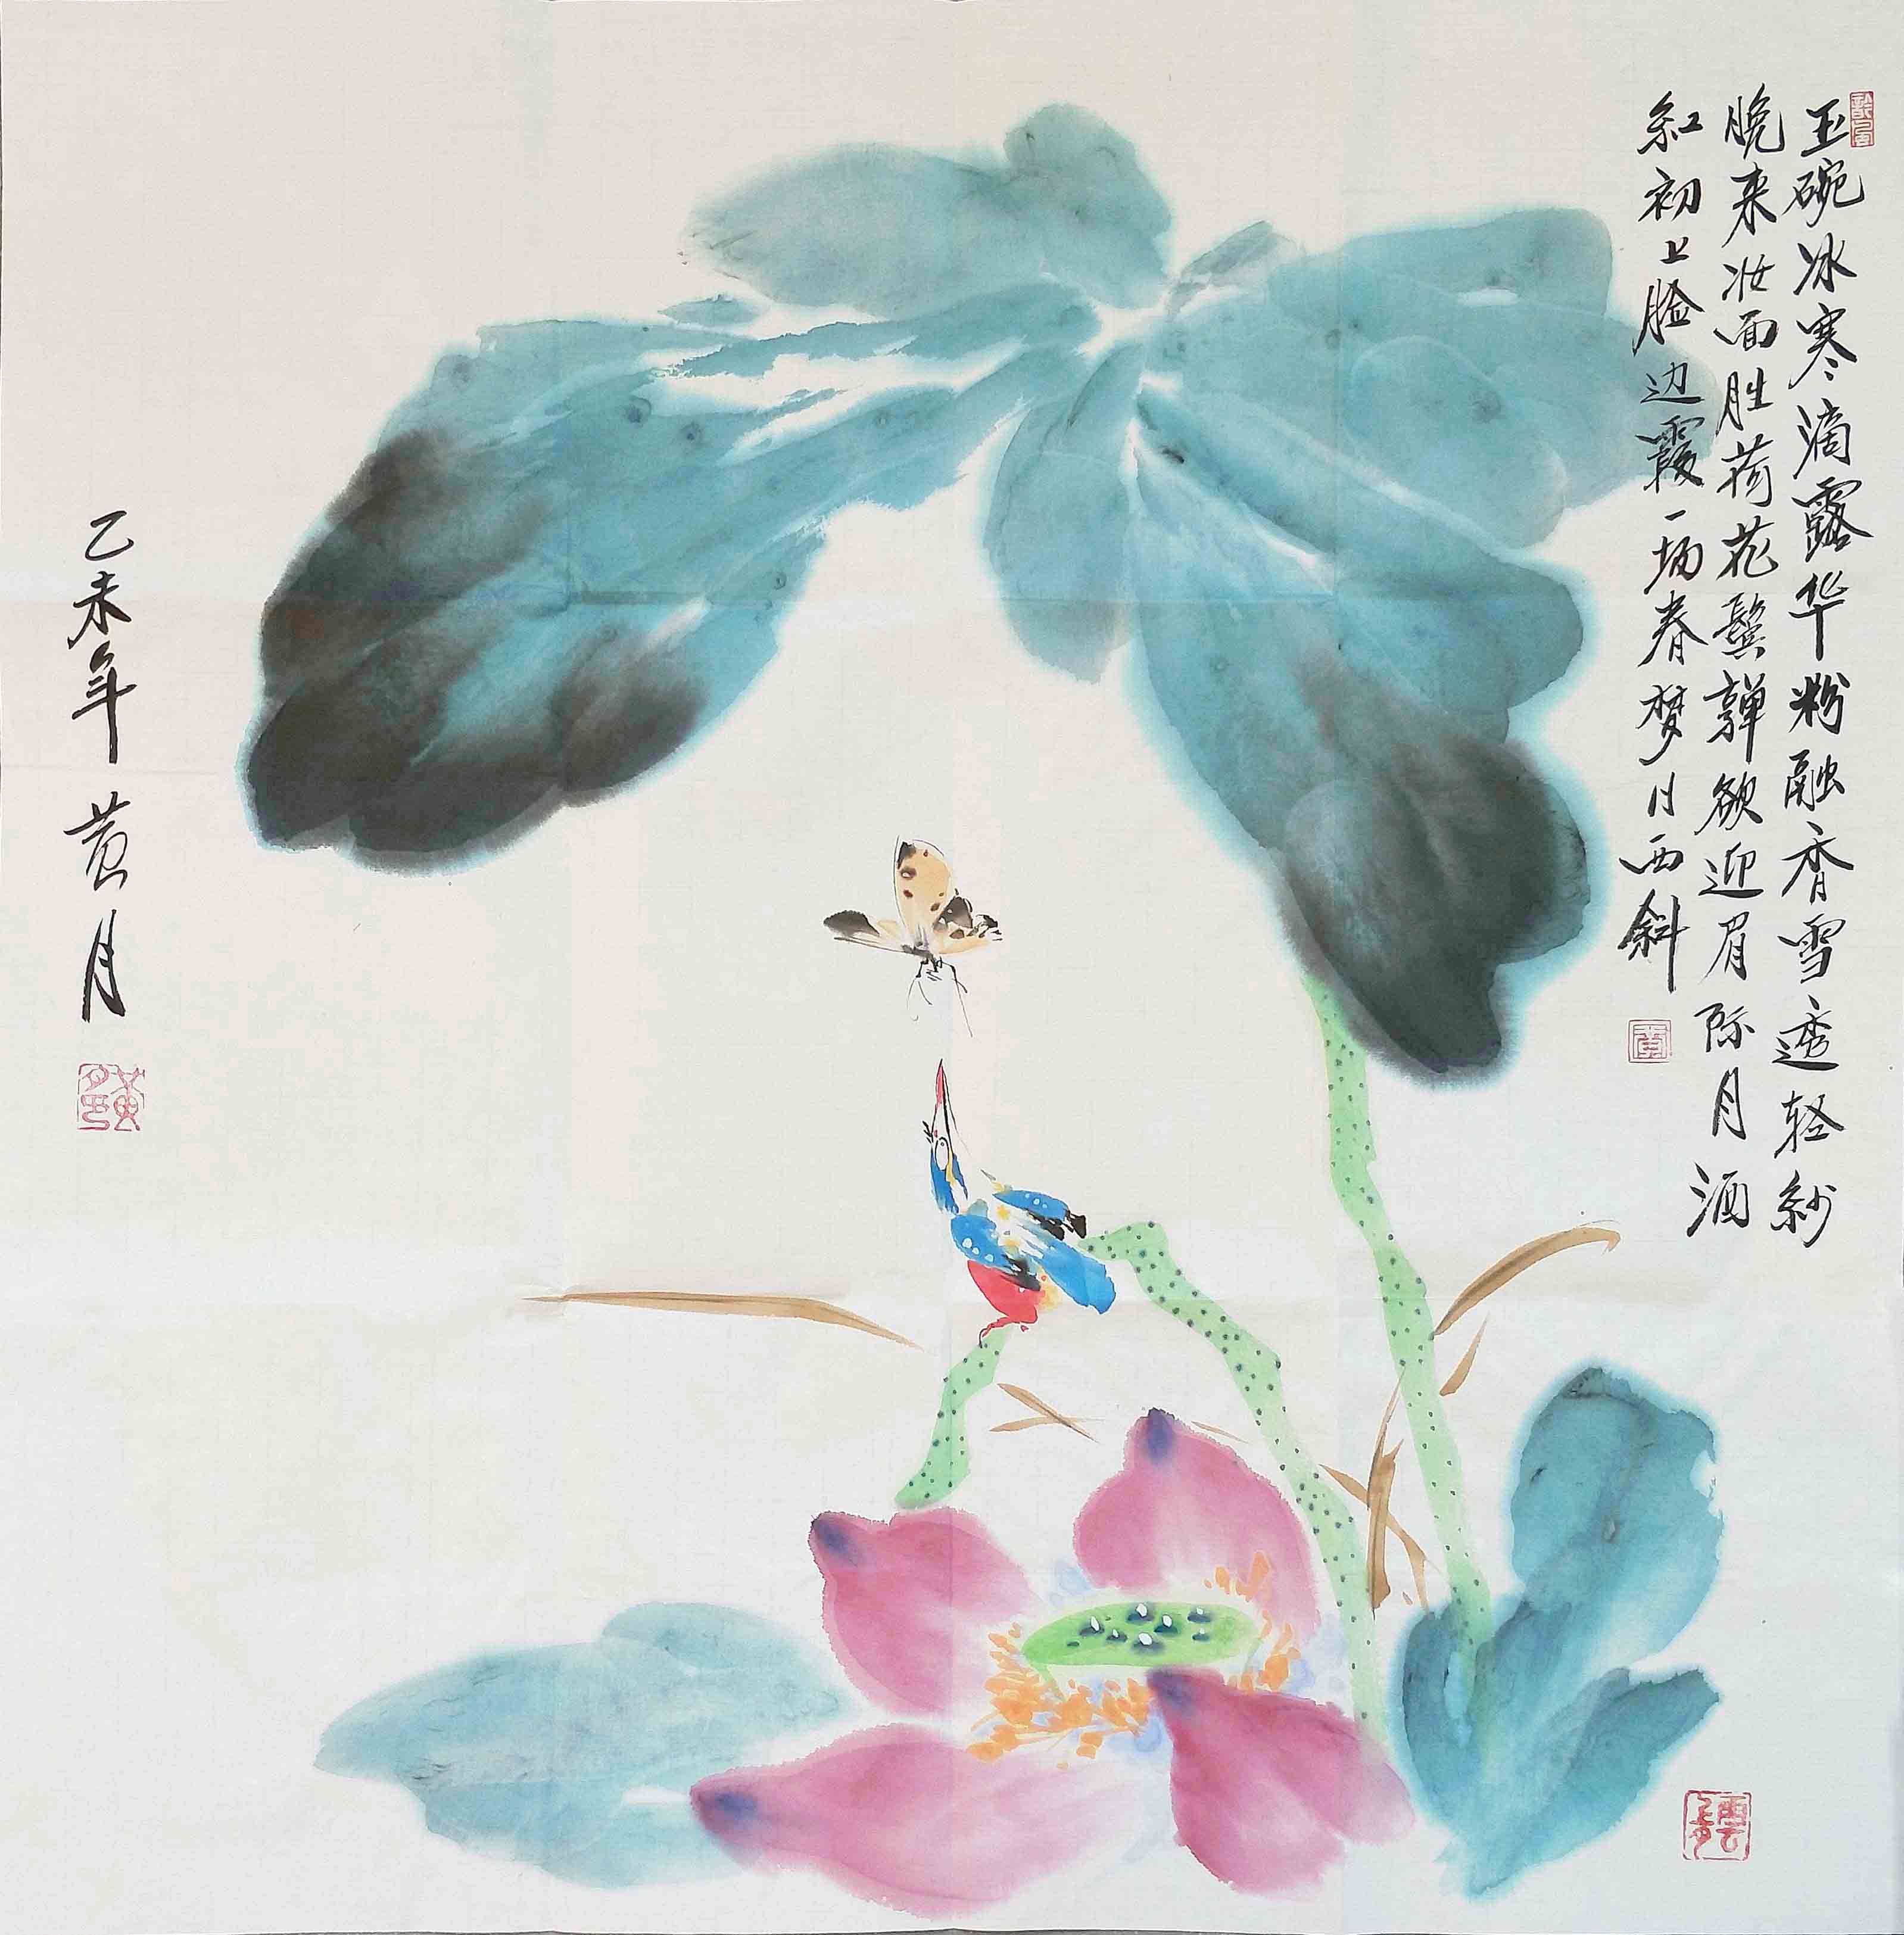 玉碗冰寒滴露华粉融香雪透轻紗
晚来妆面胜荷花鬓亸欲迎眉际月酒
紅初上脸边霞一场春梦日西斜
乙未年 黄月